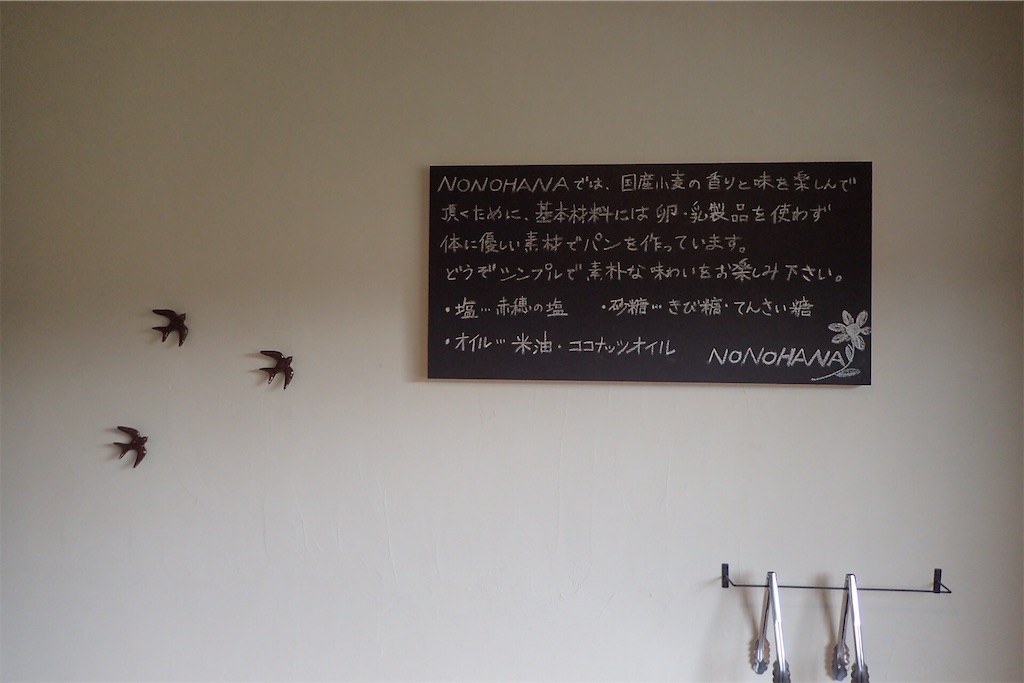 NONOHANAでは、国産小麦の香りと味を楽しんで
頂くために、基本材料には卵・乳製品を使わず
体に優しい素材でパンを作っています。
どうぞシンプルで素朴な味わいをお楽しみ下さい。
・塩…赤穂の塩 ・砂糖…きび糖・てんさい糖
・オイル…米油・ココナッツオイル
NONOHANA